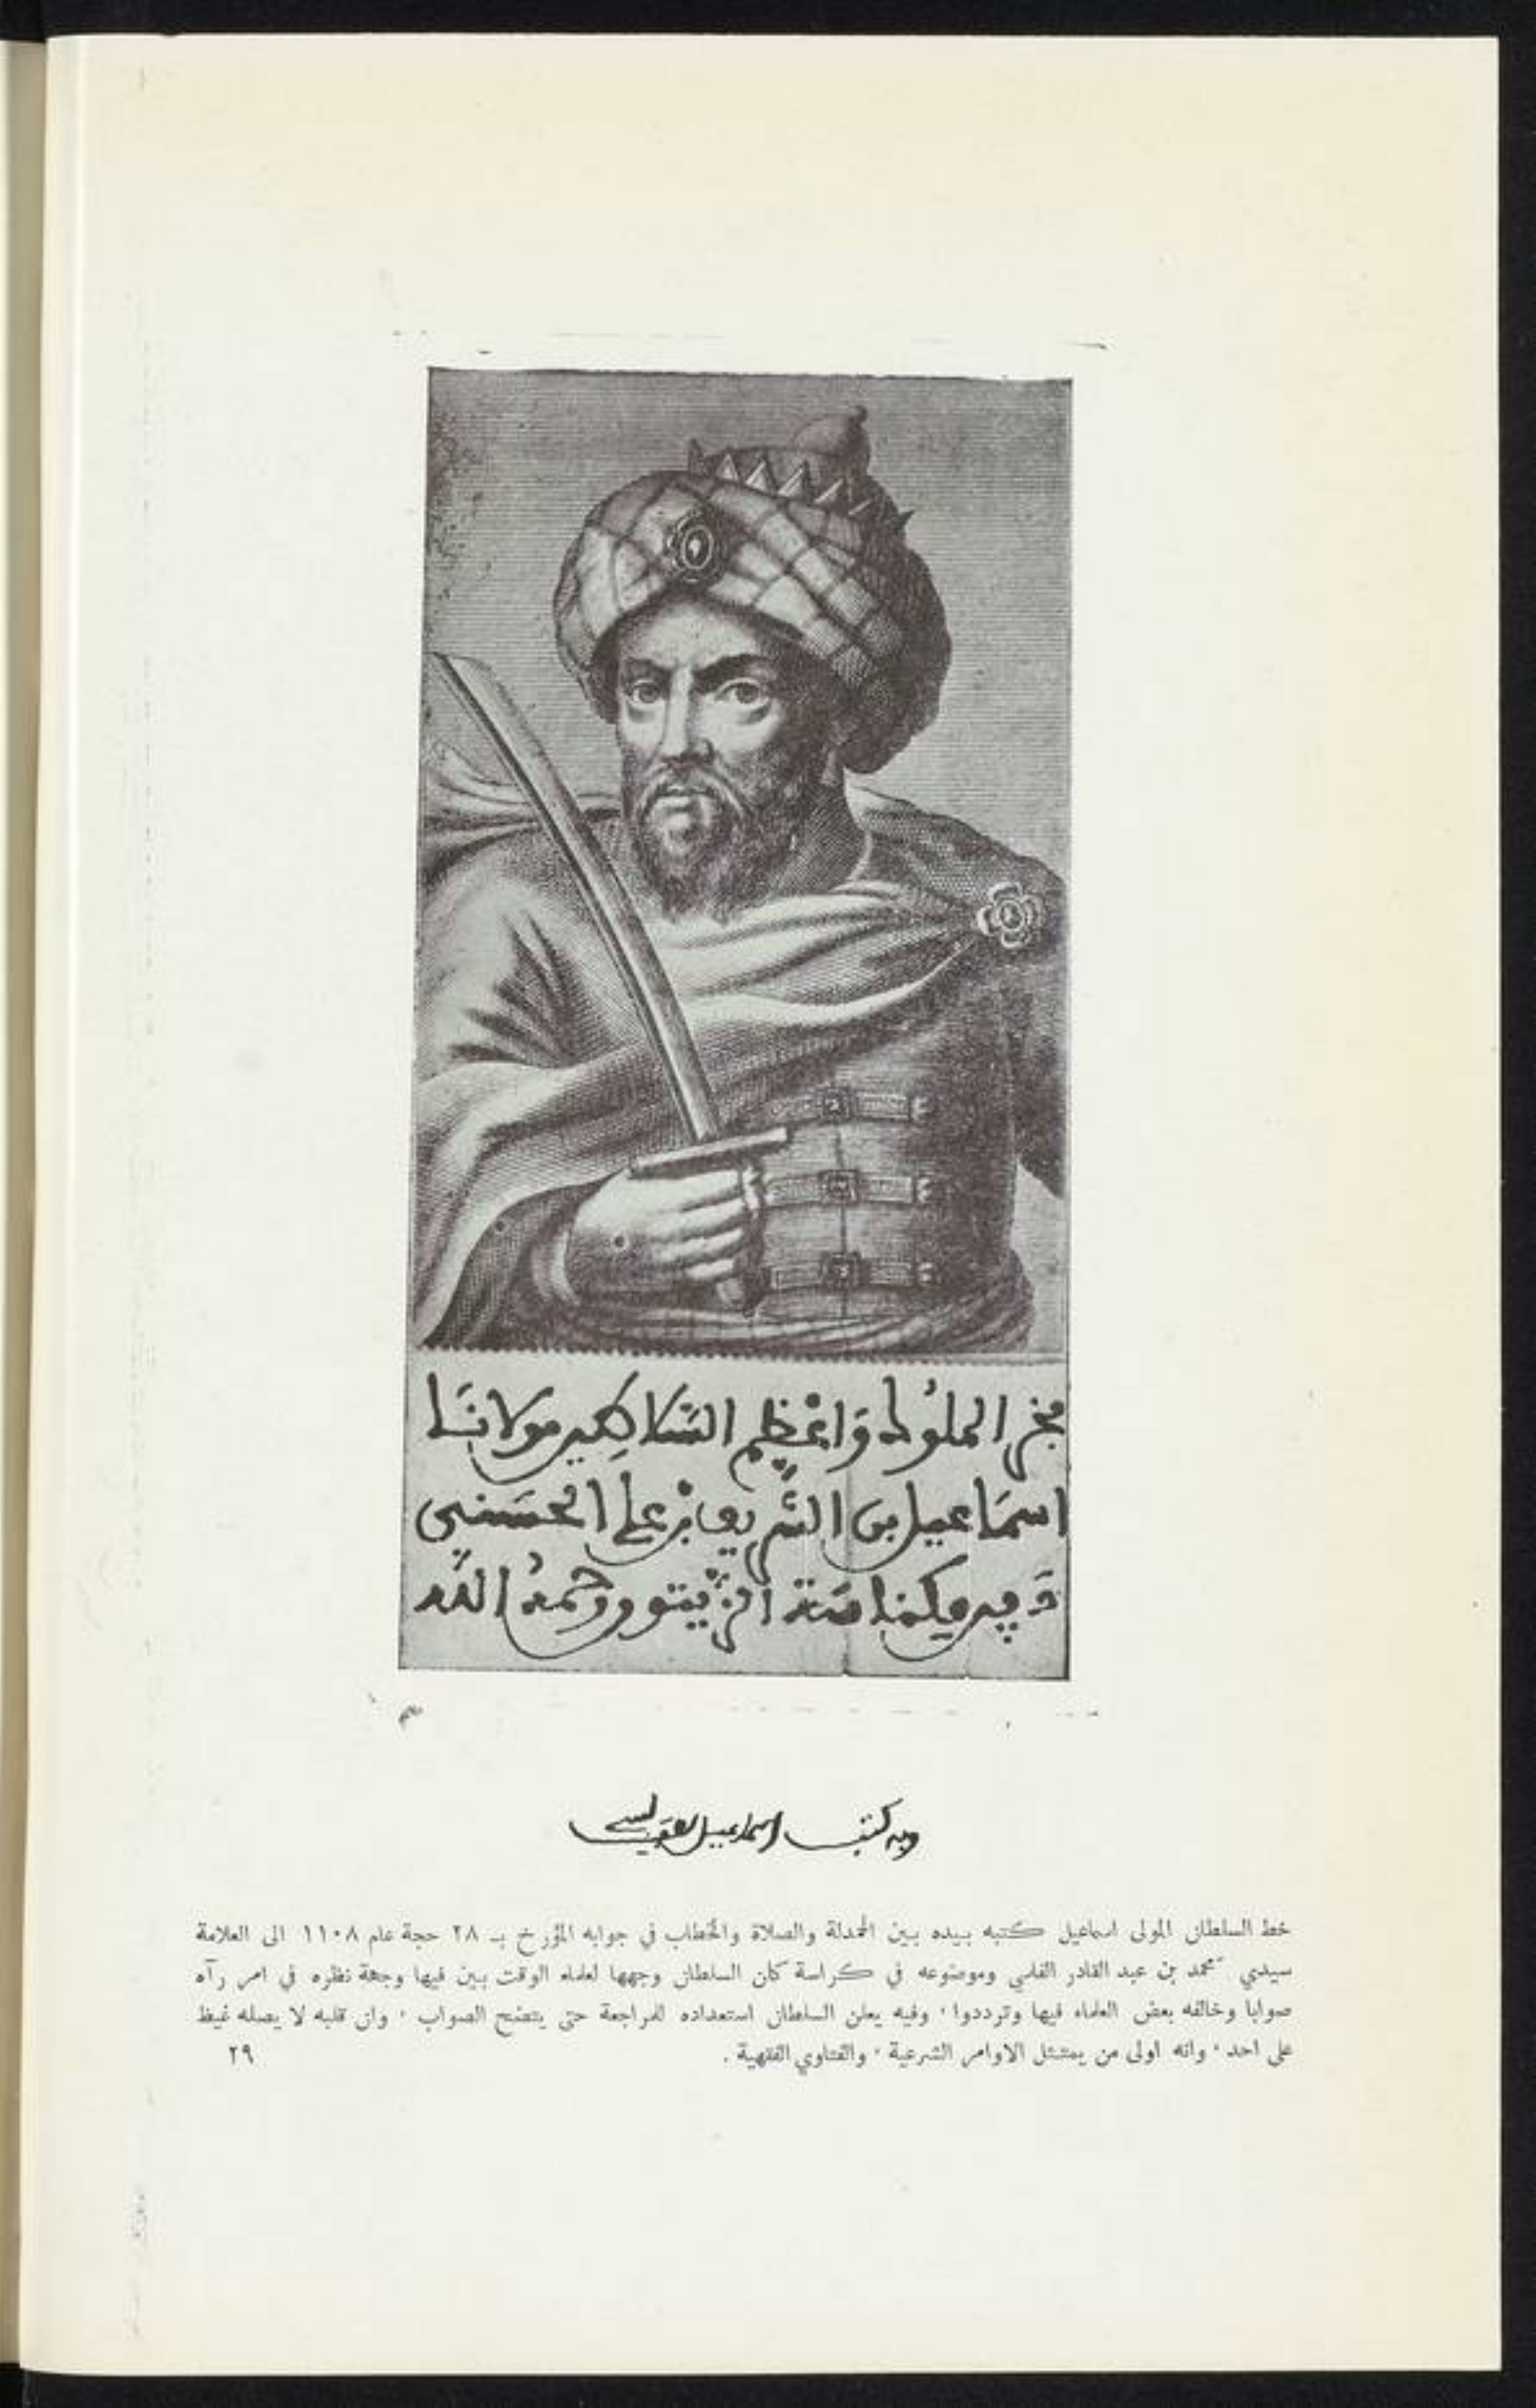 فخر الملوك وَاعْظم السَّلاطِين مَوْلانَا
اسمَاعيل بن الشَّريف بن علي الحسَني
دَفين مكناسَة الزَّيتون رحمهُ الله
وبه كتب اسماعيل
خط السلطان المولى اسماعيل كتبه بيده بين الحمدلة والصلاة والخطاب في جوابه المؤرخ بـ ٢٨ حجة عام ١١٠٨ الى العلامة
سيدي محمد بن عبد القادر الفاسي وموضوعه في كراسة كان السلطان وجهها لعلماء الوقت بين فيها وجهة نظره في امر رآه
صوابا وخالفه بعض العلماء فيها وترددوا ، وفيه يعلن السلطان استعداده للمراجعة حتى يتضح الصواب ، وان قلبه لا يصله غيظ
على احد ، وانه اولى من يمتثل الاوامر الشرعية ، والفتاوي الفقهية .
٢٩